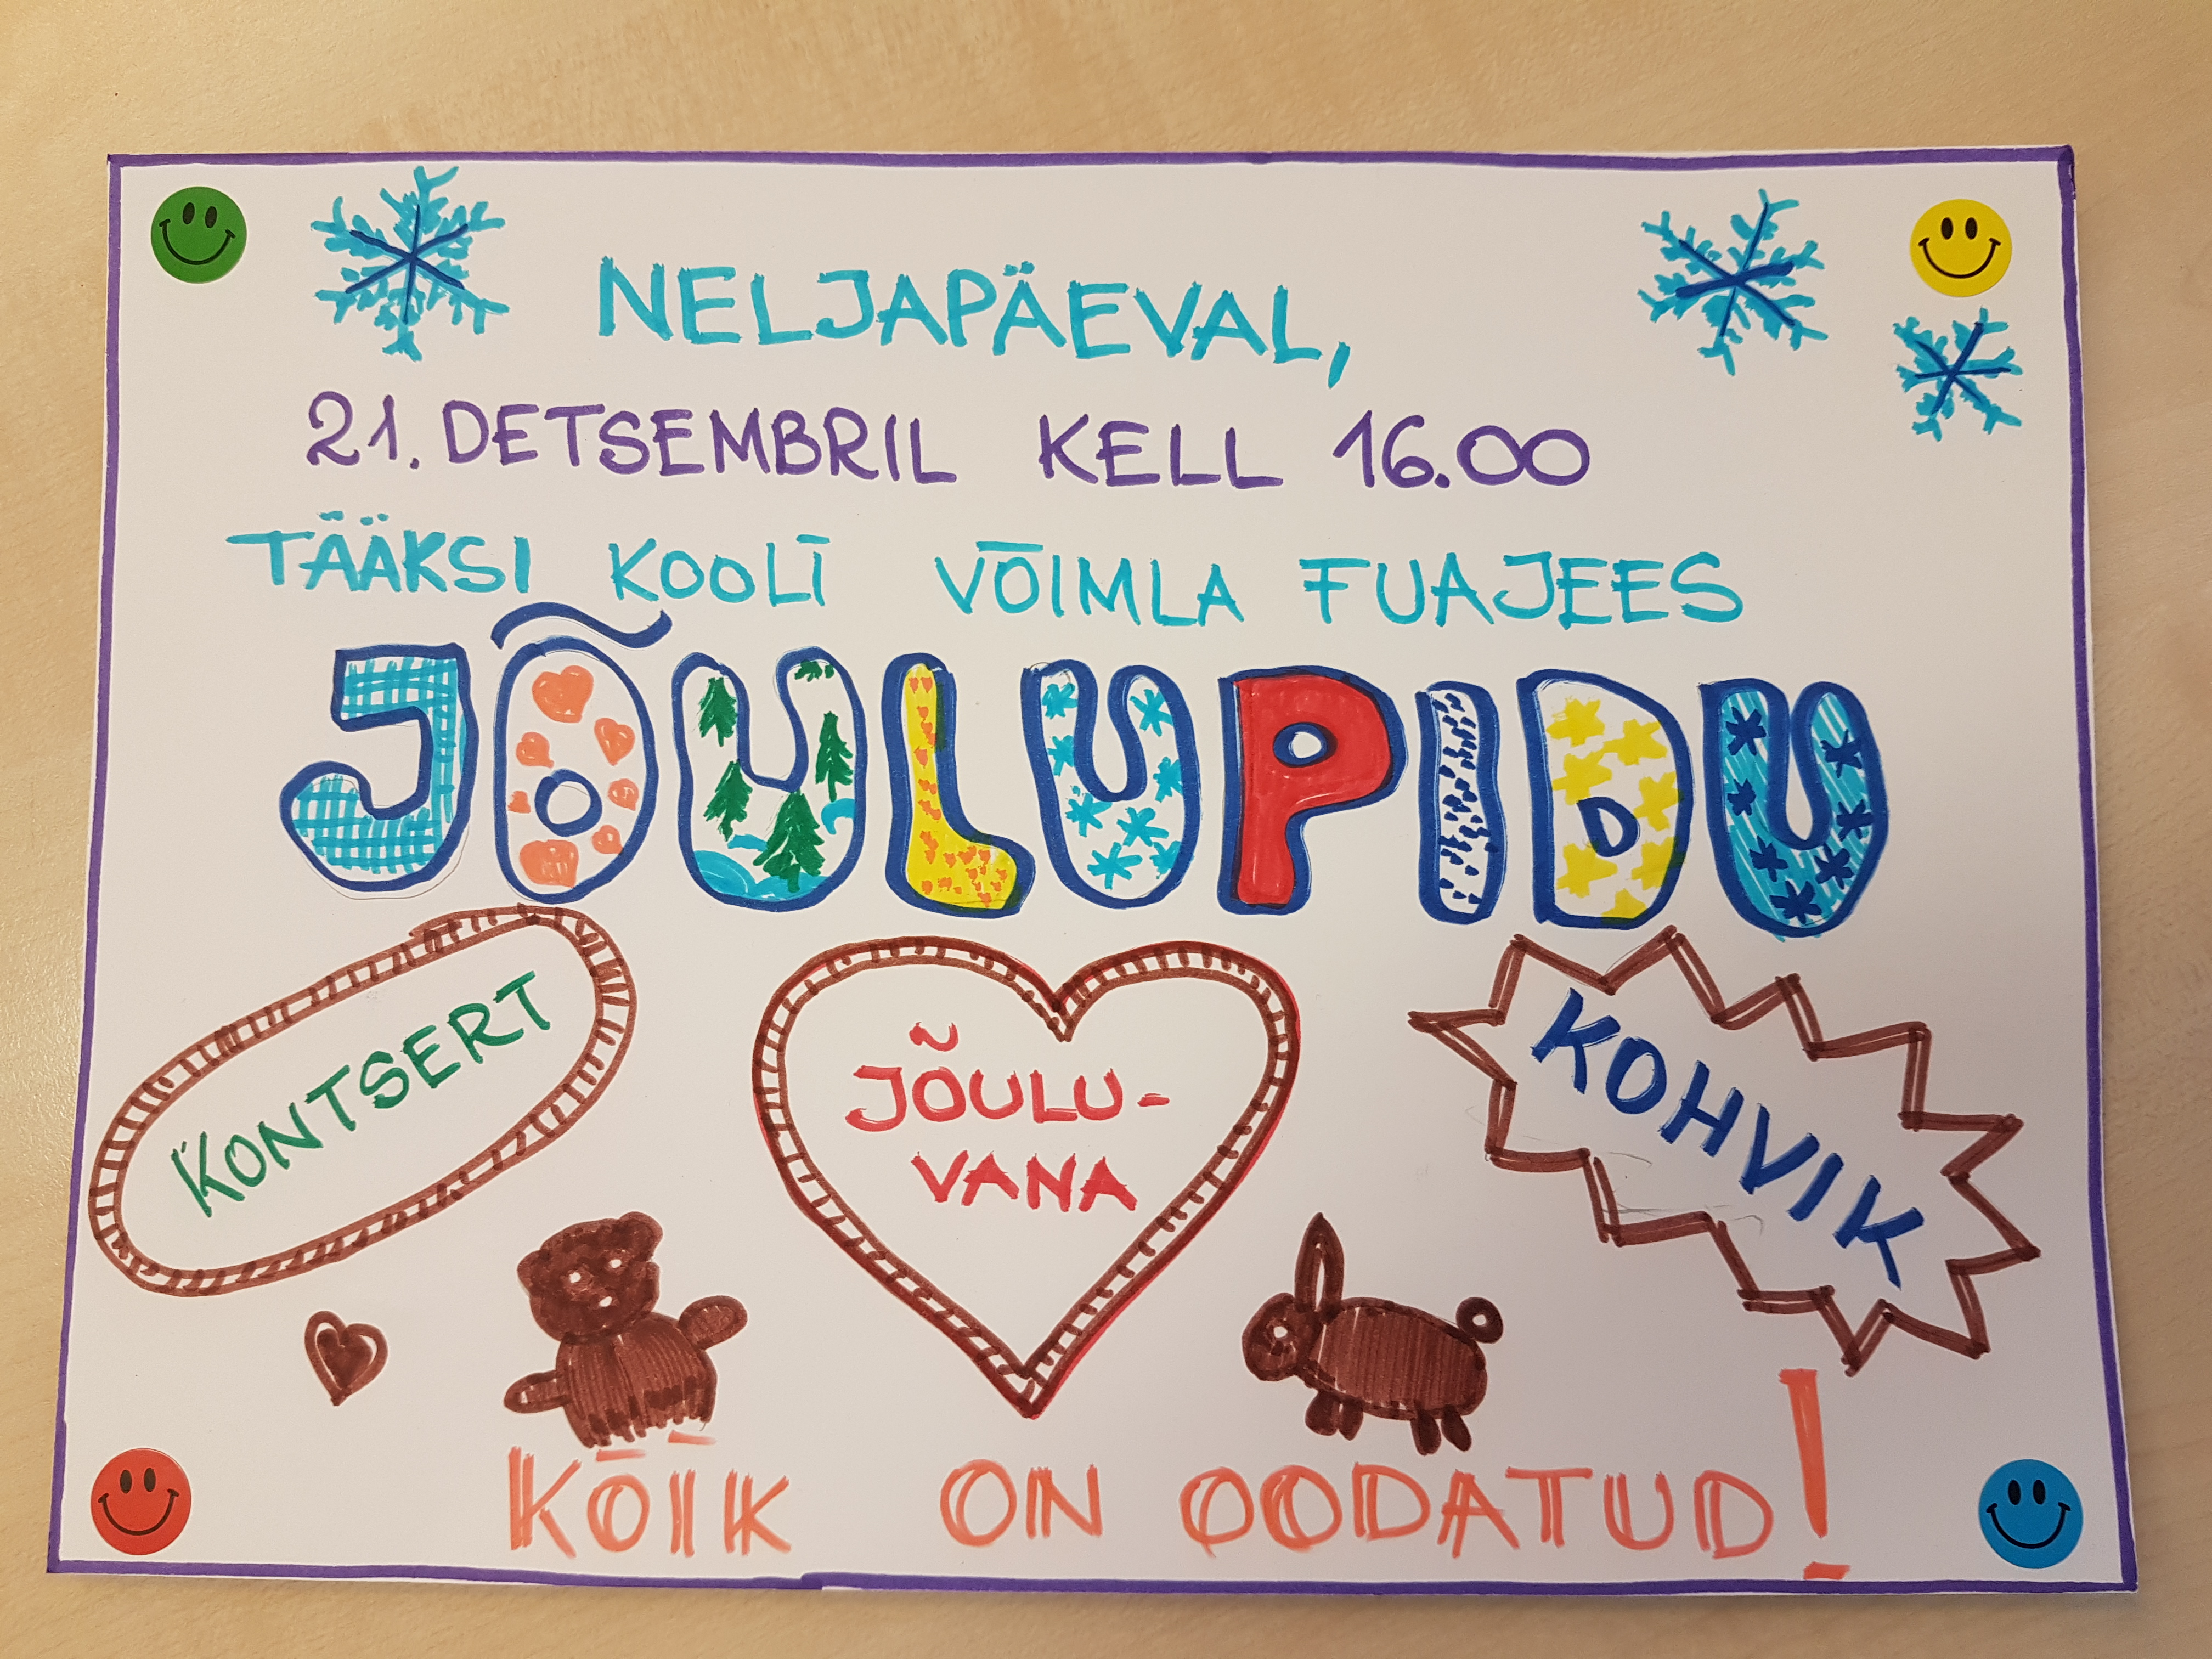 NELJAPÄEVAL,
21. DETSEMBRIL KELL 16.00
TÄÄKSI KOOLI VÕIMLA FUAJEES
JÕULUPIDU
KONTSERT
JÕULU-
VANA
KOHVIK
KÕIK ON OODATUD!